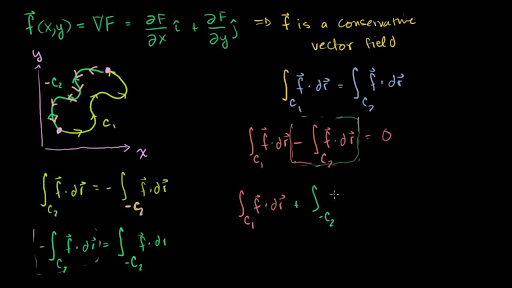 f⃗(x,y) = ∇F = ∂F/∂x î + ∂F/∂y ĵ ⇒ f⃗ is a conservative
vector field
y
-C₂
C₁
x
∫_C₁ f⃗·dr⃗ = ∫_C₂ f⃗·dr⃗
∫_C₁ f⃗·dr⃗ - ∫_C₂ f⃗·dr⃗ = 0
∫_C₂ f⃗·dr⃗ = - ∫_-C₂ f⃗·dr⃗
∫_C₁ f⃗·dr⃗ + ∫_-C₂
-∫_C₂ f⃗·dr⃗ = ∫_-C₂ f⃗·dr